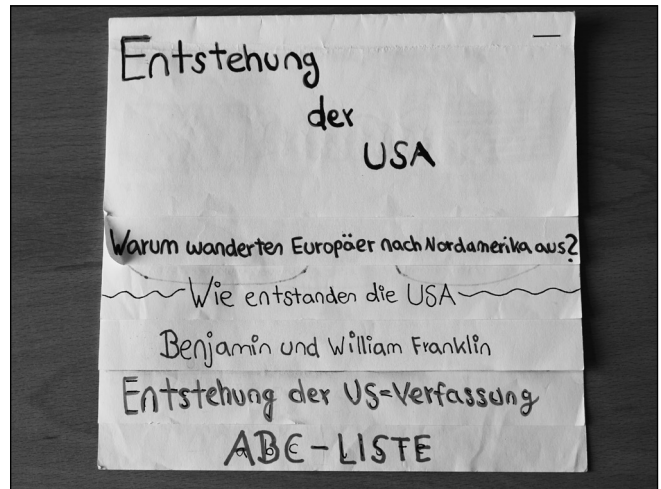 Entstehung
der
USA
Warum wanderten Europäer nach Nordamerika aus?
Wie entstanden die USA
Benjamin und William Franklin
Entstehung der US=Verfassung
ABC-LISTE